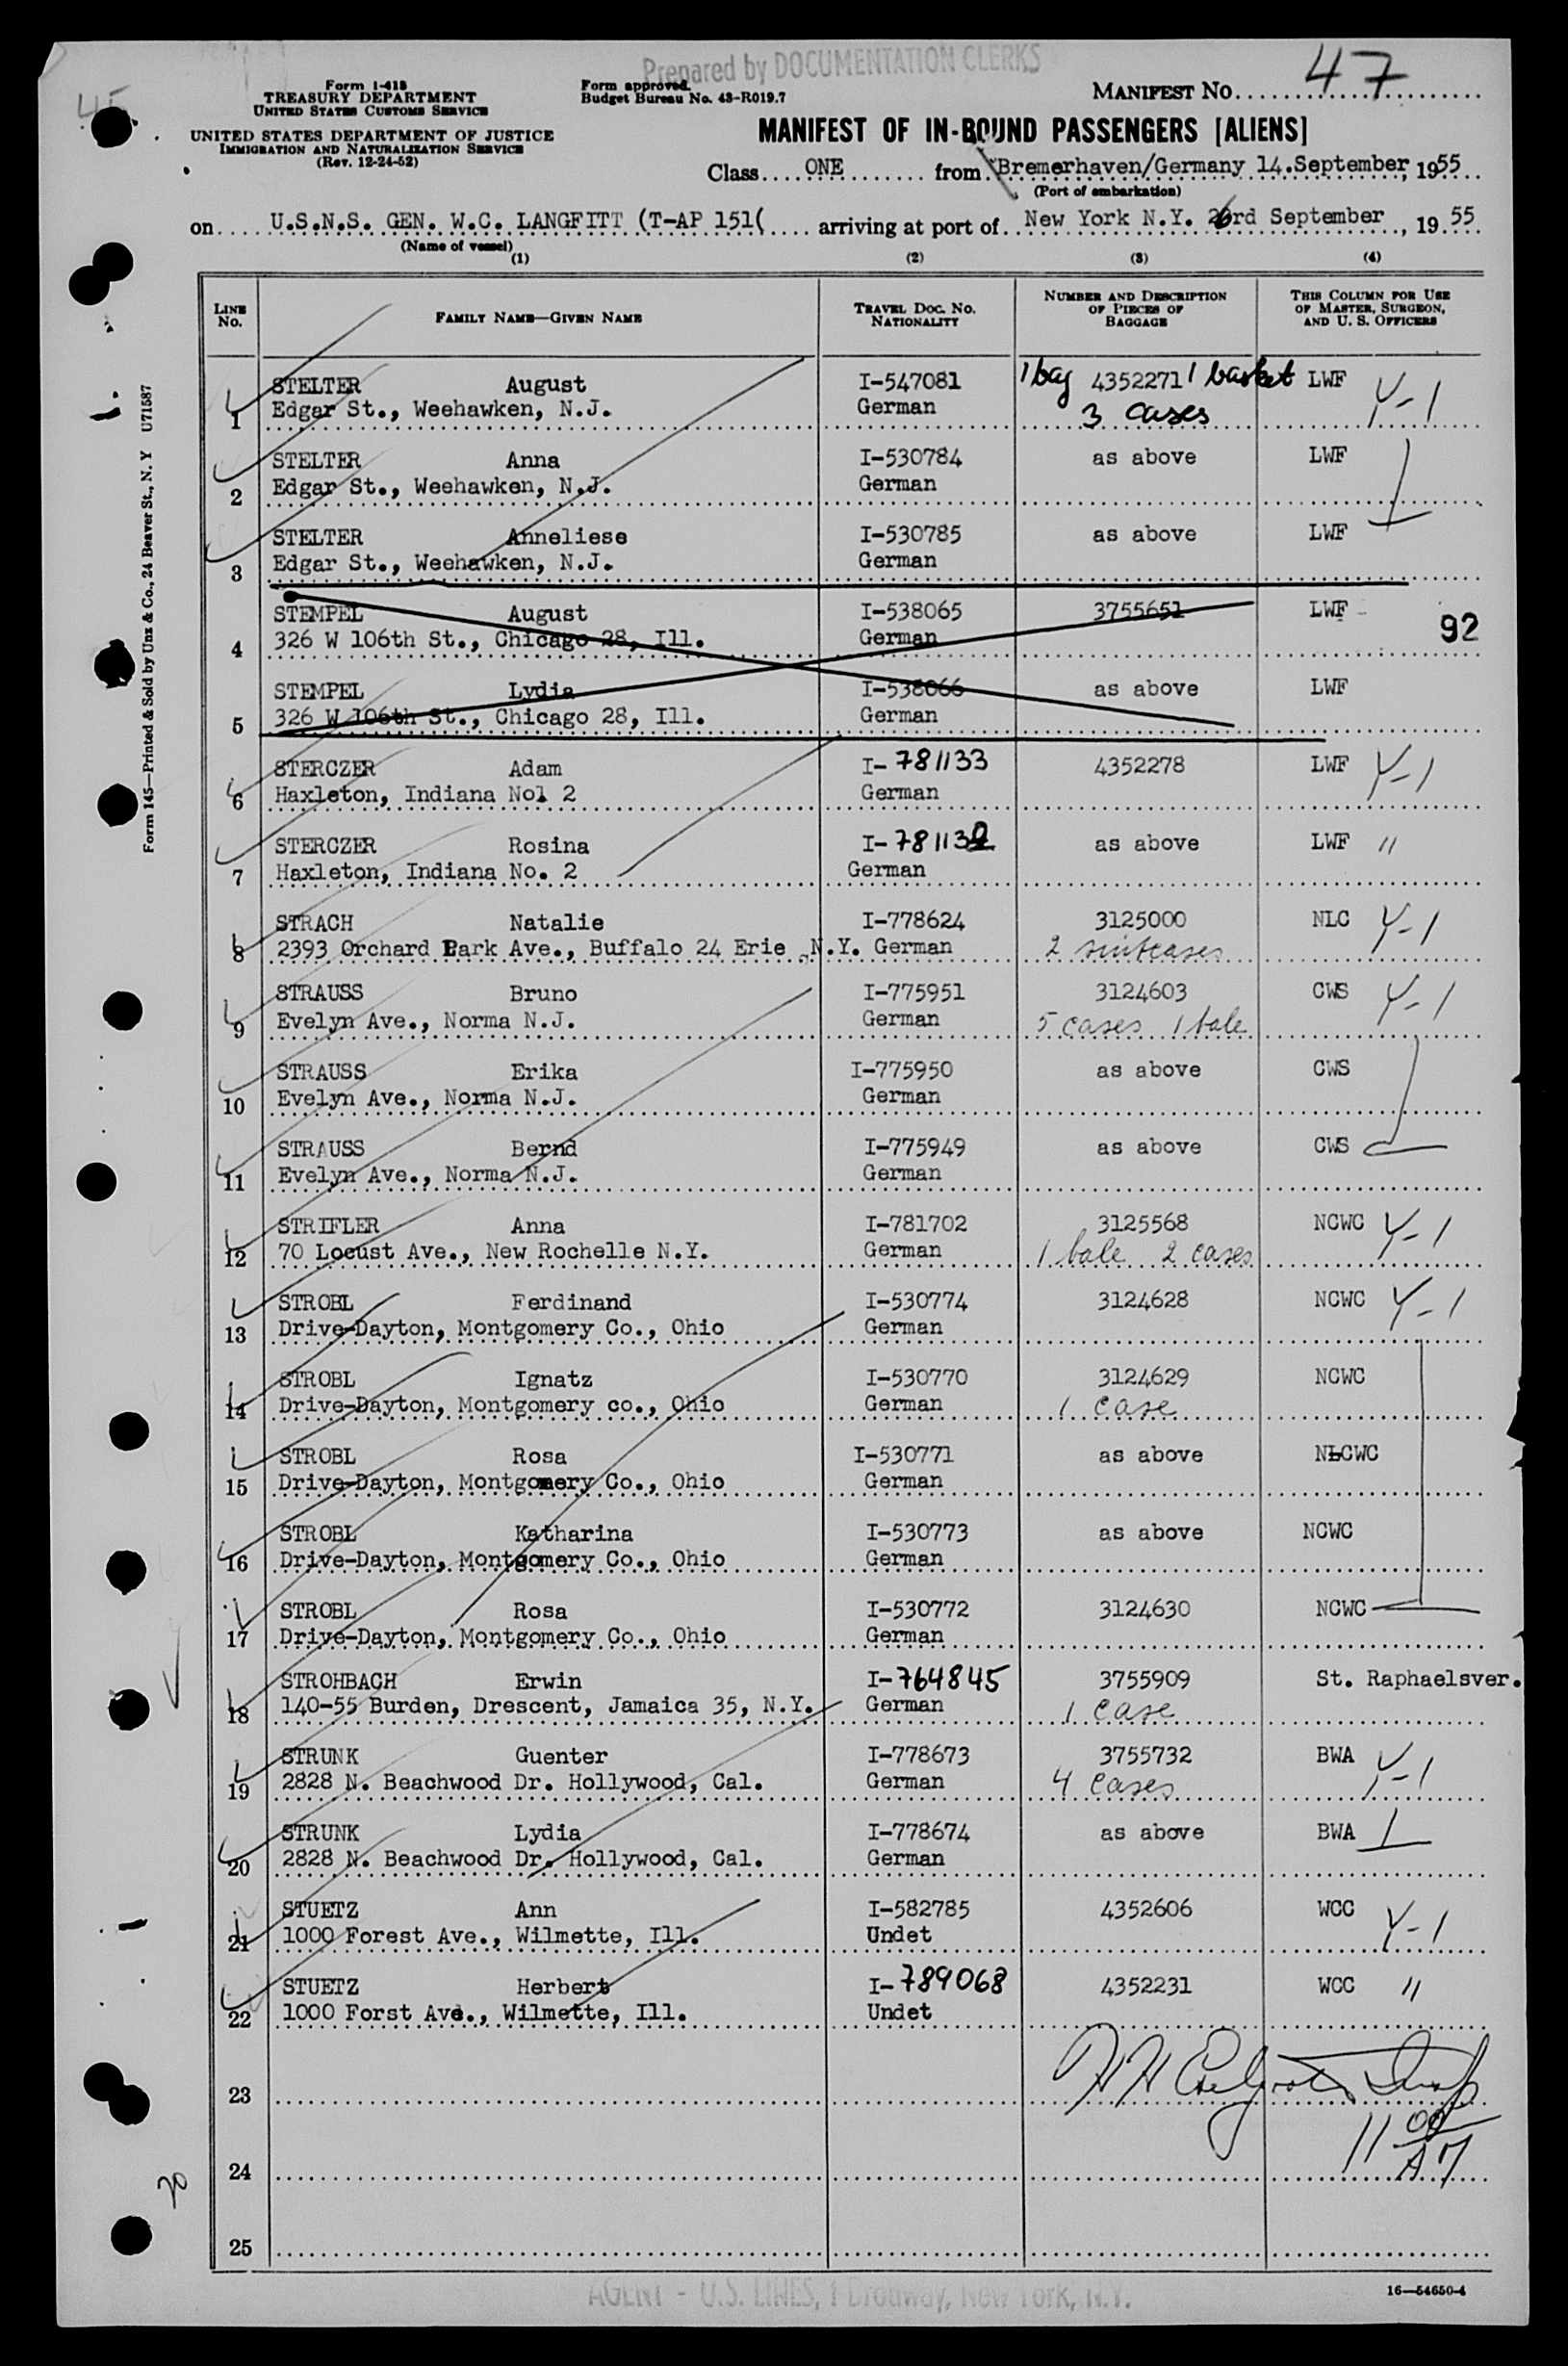 Prepared by DOCUMENTATION CLERKS
Form I-418
TREASURY DEPARTMENT
UNITED STATES CUSTOMS SERVICE
UNITED STATES DEPARTMENT OF JUSTICE
IMMIGRATION AND NATURALIZATION SERVICE
(Rev. 12-24-52)
Form approved.
Budget Bureau No. 43-R019.7
MANIFEST NO. 47
MANIFEST OF IN-BOUND PASSENGERS [ALIENS]
Class ONE from Bremerhaven/Germany 14.September, 1955
(Port of embarkation)
on U.S.N.S. GEN. W.C. LANGFITT (T-AP 151( arriving at port of New York N.Y. rd September, 1955
(Name of vessel)
(1) (2) (3) (4)
LINE NO. FAMILY NAME—GIVEN NAME TRAVEL DOC. NO. NATIONALITY NUMBER AND DESCRIPTION OF PIECES OF BAGGAGE THIS COLUMN FOR USE OF MASTER, SURGEON, AND U. S. OFFICERS
STELTER August I-547081 1 bag 4352271 1 basket LWF Y-1
1 Edgar St., Weehawken, N.J. German 3 cases
STELTER Anna I-530784 as above LWF
2 Edgar St., Weehawken, N.J. German
STELTER Anneliese I-530785 as above LWF
3 Edgar St., Weehawken, N.J. German
STEMPEL August I-538065 3755651 LWF 92
4 326 W 106th St., Chicago 28, Ill. German
STEMPEL Lydia I-538066 as above LWF
5 326 W 106th St., Chicago 28, Ill. German
STERCZER Adam I-781133 4352278 LWF Y-1
6 Haxleton, Indiana No1 2 German
STERCZER Rosina I-781132 as above LWF "
7 Haxleton, Indiana No. 2 German
STRACH Natalie I-778624 3125000 NLC Y-1
8 2393 Orchard Park Ave., Buffalo 24 Erie N.Y. German 2 suitcases
STRAUSS Bruno I-775951 3124603 CWS Y-1
9 Evelyn Ave., Norma N.J. German 5 cases 1 bale
STRAUSS Erika I-775950 as above CWS
10 Evelyn Ave., Norma N.J. German
STRAUSS Bernd I-775949 as above CWS
11 Evelyn Ave., Norma N.J. German
STRIFLER Anna I-781702 3125568 NCWC Y-1
12 70 Locust Ave., New Rochelle N.Y. German 1 bale 2 cases
STROBL Ferdinand I-530774 3124628 NCWC Y-1
13 Drive-Dayton, Montgomery Co., Ohio German
STROBL Ignatz I-530770 3124629 NCWC
14 Drive-Dayton, Montgomery co., Ohio German 1 case
STROBL Rosa I-530771 as above NCWC
15 Drive-Dayton, Montgomery Co., Ohio German
STROBL Katharina I-530773 as above NCWC
16 Drive-Dayton, Montgomery Co., Ohio German
STROBL Rosa I-530772 3124630 NCWC
17 Drive-Dayton, Montgomery Co., Ohio German
STROHBACH Erwin I-764845 3755909 St. Raphaelsver.
18 140-55 Burden, Drescent, Jamaica 35, N.Y. German 1 case
STRUNK Guenter I-778673 3755732 BWA Y-1
19 2828 N. Beachwood Dr. Hollywood, Cal. German 4 cases
STRUNK Lydia I-778674 as above BWA
20 2828 N. Beachwood Dr. Hollywood, Cal. German
STUETZ Ann I-582785 4352606 WCC Y-1
21 1000 Forest Ave., Wilmette, Ill. Undet
STUETZ Herbert I-789068 4352231 WCC "
22 1000 Forst Ave., Wilmette, Ill. Undet
23
11 00
24
25
70
Form 145—Printed & Sold by Unz & Co., 24 Beaver St., N. Y U71587
AGENT - U.S. LINES, 1 Broadway, New York, N.Y.
16—54650-4